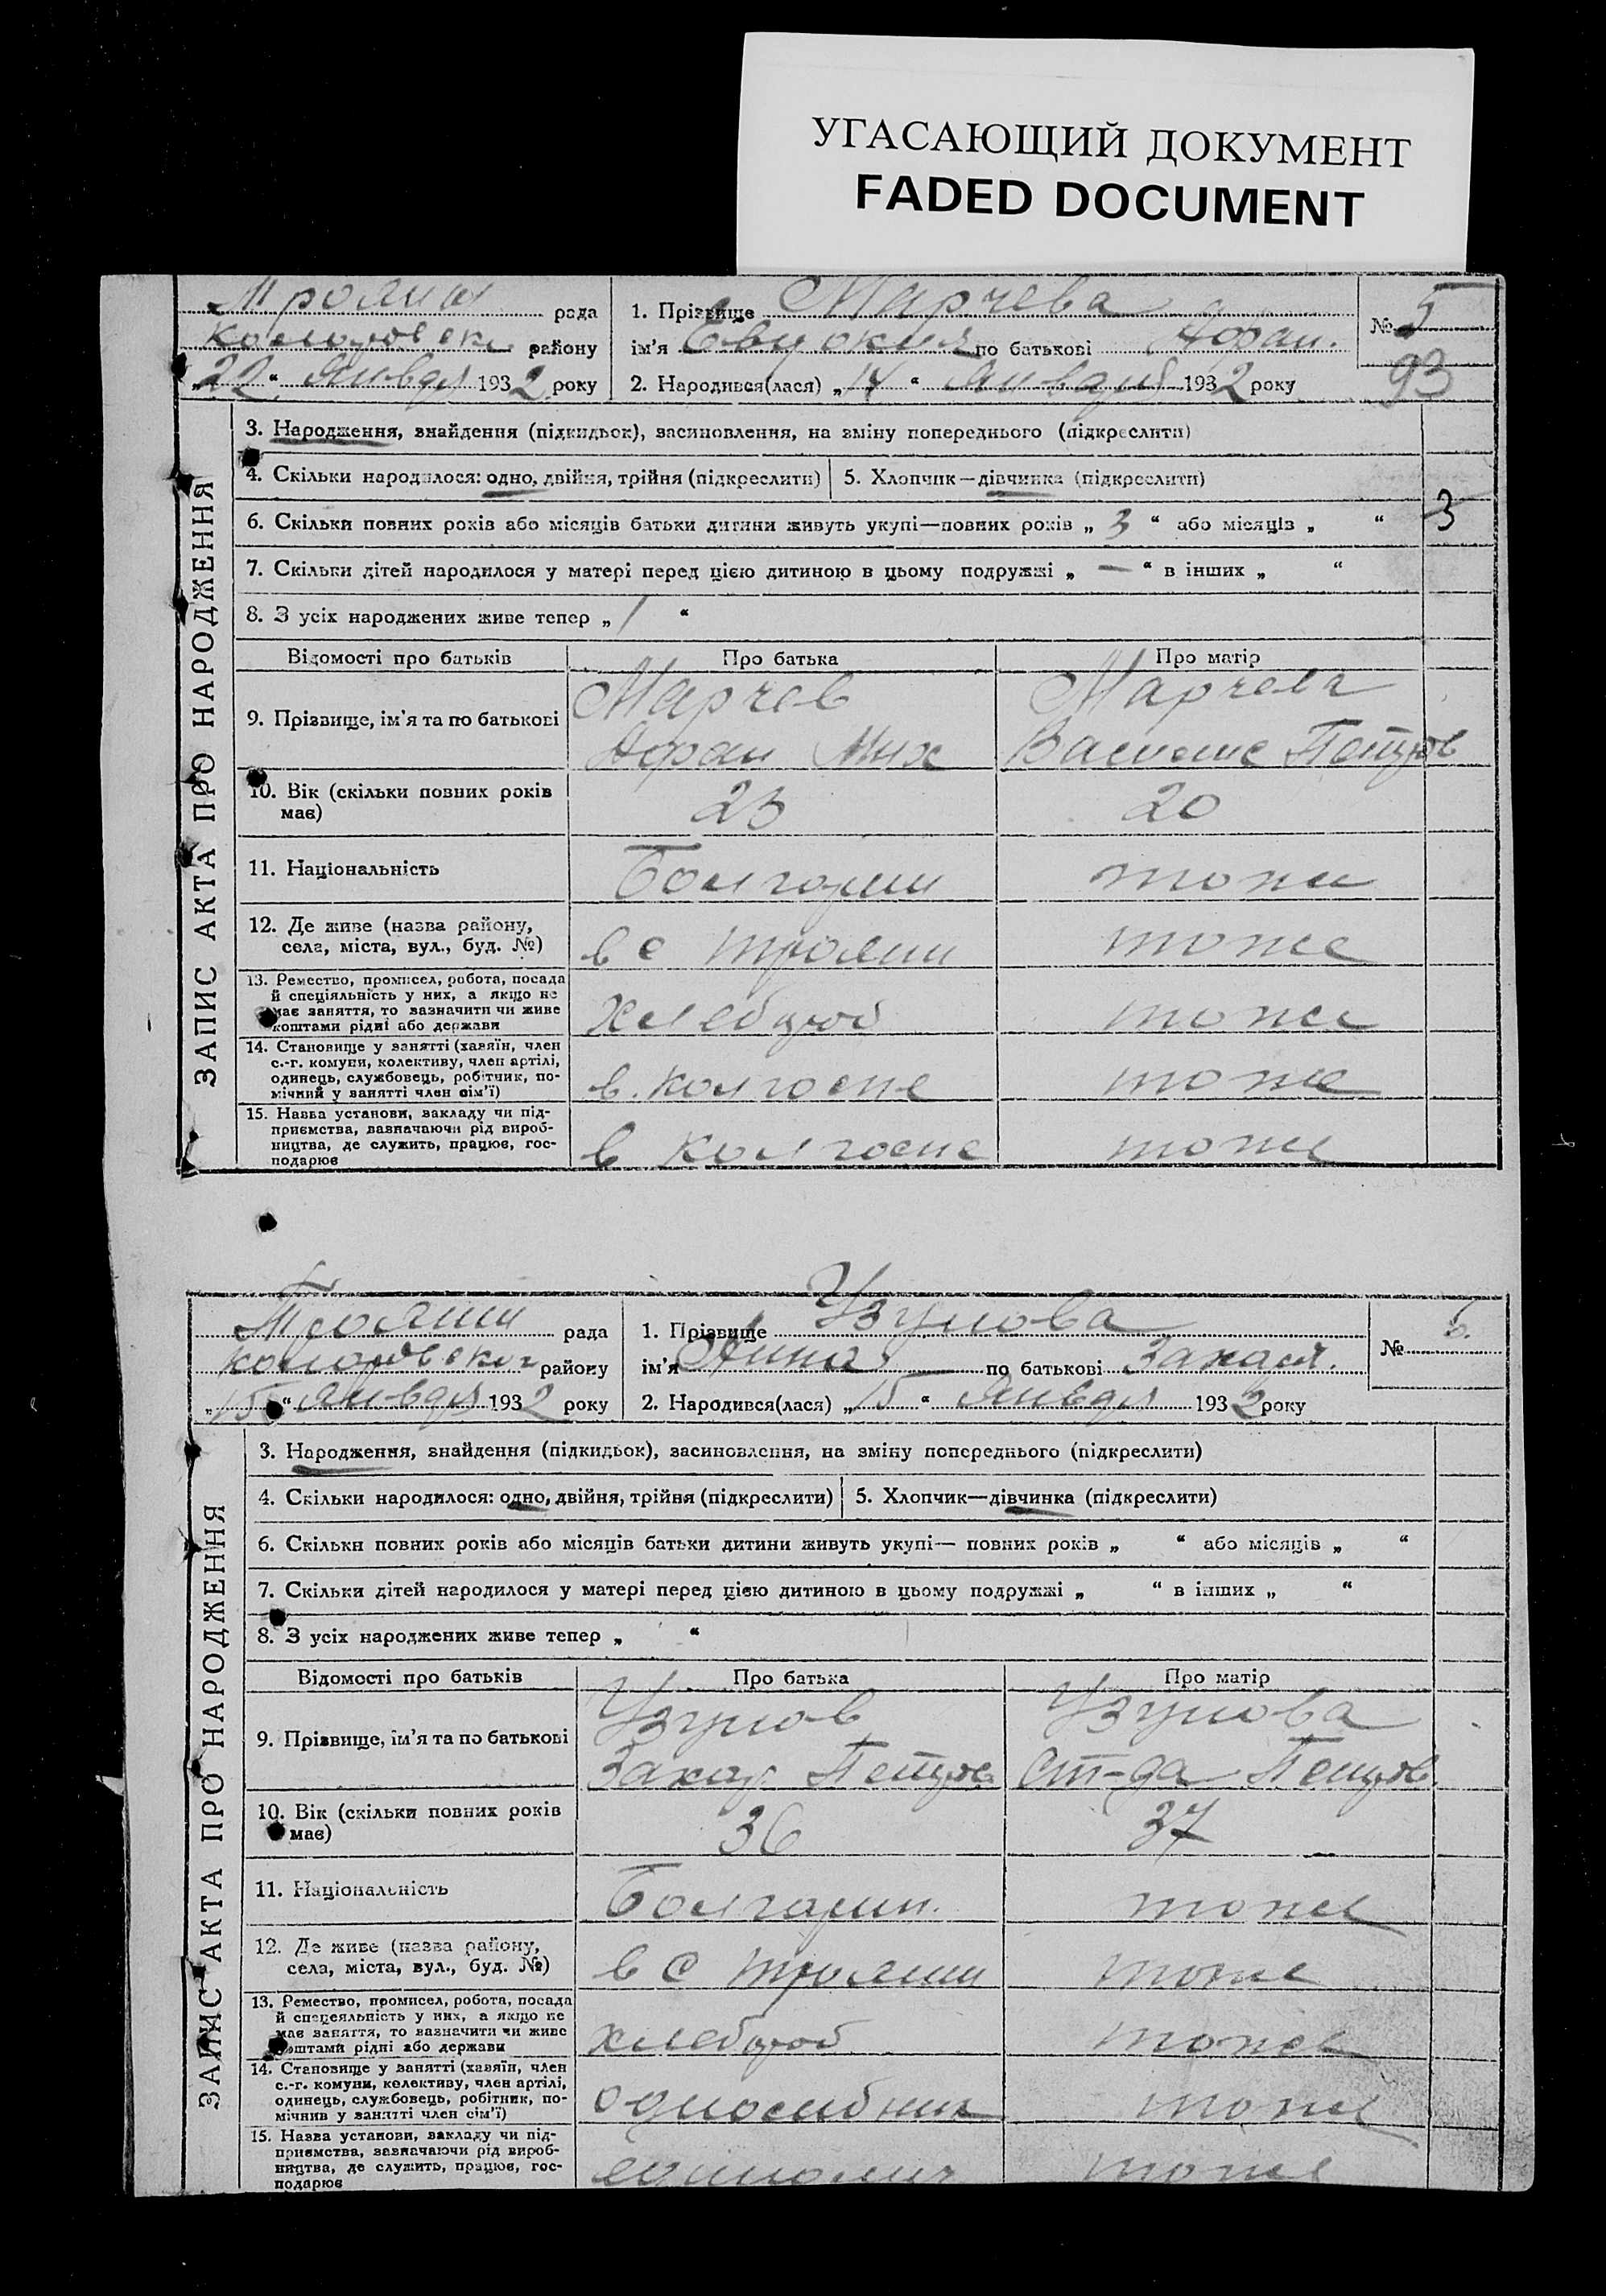 УГАСАЮЩИЙ ДОКУМЕНТ
FADED DOCUMENT
Трояны рада
району
„22“ Января 1932 року
1. Прізвище Марчева
ім'я Евдокия по батькові Афан.
2. Народився(лася) „14“ Января 1932 року
№ 5
93
ЗАПИС АКТА ПРО НАРОДЖЕННЯ
3. Народження, знайдення (підкидьок), засиновлення, на зміну попереднього (підкреслити)
4. Скільки народилося: одно, двійня, трійня (підкреслити) 5. Хлопчик—дівчинка (підкреслити)
6. Скільки повних років або місяців батьки дитини живуть укупі—повних років „ 3 “ або місяців „ “ 3
7. Скільки дітей народилося у матері перед цією дитиною в цьому подружжі „ — “ в інших „ “
8. З усіх народжених живе тепер „ 1 “
Відомості про батьків Про батька Про матір
9. Прізвище, ім'я та по батькові
Марчев
Афан Мих
Марчева
Петров
10. Вік (скільки повних років
має)
23 20
11. Національність
Болгарин тоже
12. Де живе (назва району,
села, міста, вул., буд. №)
в с Трояны тоже
13. Ремество, промисел, робота, посада
й спеціяльність у них, а якщо не
має заняття, то зазначити чи живе
коштами рідні або держави
Хлебороб тоже
14. Становище у занятті (хазяїн, член
с.-г. комуни, колективу, член артілі,
одинець, службовець, робітник, по-
мічний у занятті член сім'ї)
в колгоспе тоже
15. Назва установи, закладу чи під-
приємства, зазначаючи рід вироб-
ництва, де служить, працює, гос-
подарює
в колгоспе тоже
Трояны рада
району
„15“ Января 1932 року
1. Прізвище Узунова
ім'я Анна по батькові Захар.
2. Народився(лася) „15“ Января 1932 року
№ 6.
ЗАПИС АКТА ПРО НАРОДЖЕННЯ
3. Народження, знайдення (підкидьок), засиновлення, на зміну попереднього (підкреслити)
4. Скільки народилося: одно, двійня, трійня (підкреслити) 5. Хлопчик—дівчинка (підкреслити)
6. Скільки повних років або місяців батьки дитини живуть укупі— повних років „ “ або місяців „ “
7. Скільки дітей народилося у матері перед цією дитиною в цьому подружжі „ “ в інших „ “
8. З усіх народжених живе тепер „ “
Відомості про батьків Про батька Про матір
9. Прізвище, ім'я та по батькові
Узунов
Захар Петров
Узунова
Ст-да Петров
10. Вік (скільки повних років
має)
36 37
11. Національність
Болгарин. тоже
12. Де живе (назва району,
села, міста, вул., буд. №)
в с Трояны тоже
13. Ремество, промисел, робота, посада
й спецеяльність у них, а якщо не
має заняття, то зазначити чи живе
коштами рідні або держави
хлебороб тоже
14. Становище у занятті (хазяїн, член
с.-г. комуни, колективу, член артілі,
одинець, службовець, робітник, по-
мічнив у занятті член сім'ї)
односибник тоже
15. Назва установи, закладу чи під-
приємства, зазначаючи рід вироб-
ництва, де служить, працює, гос-
подарює
тоже